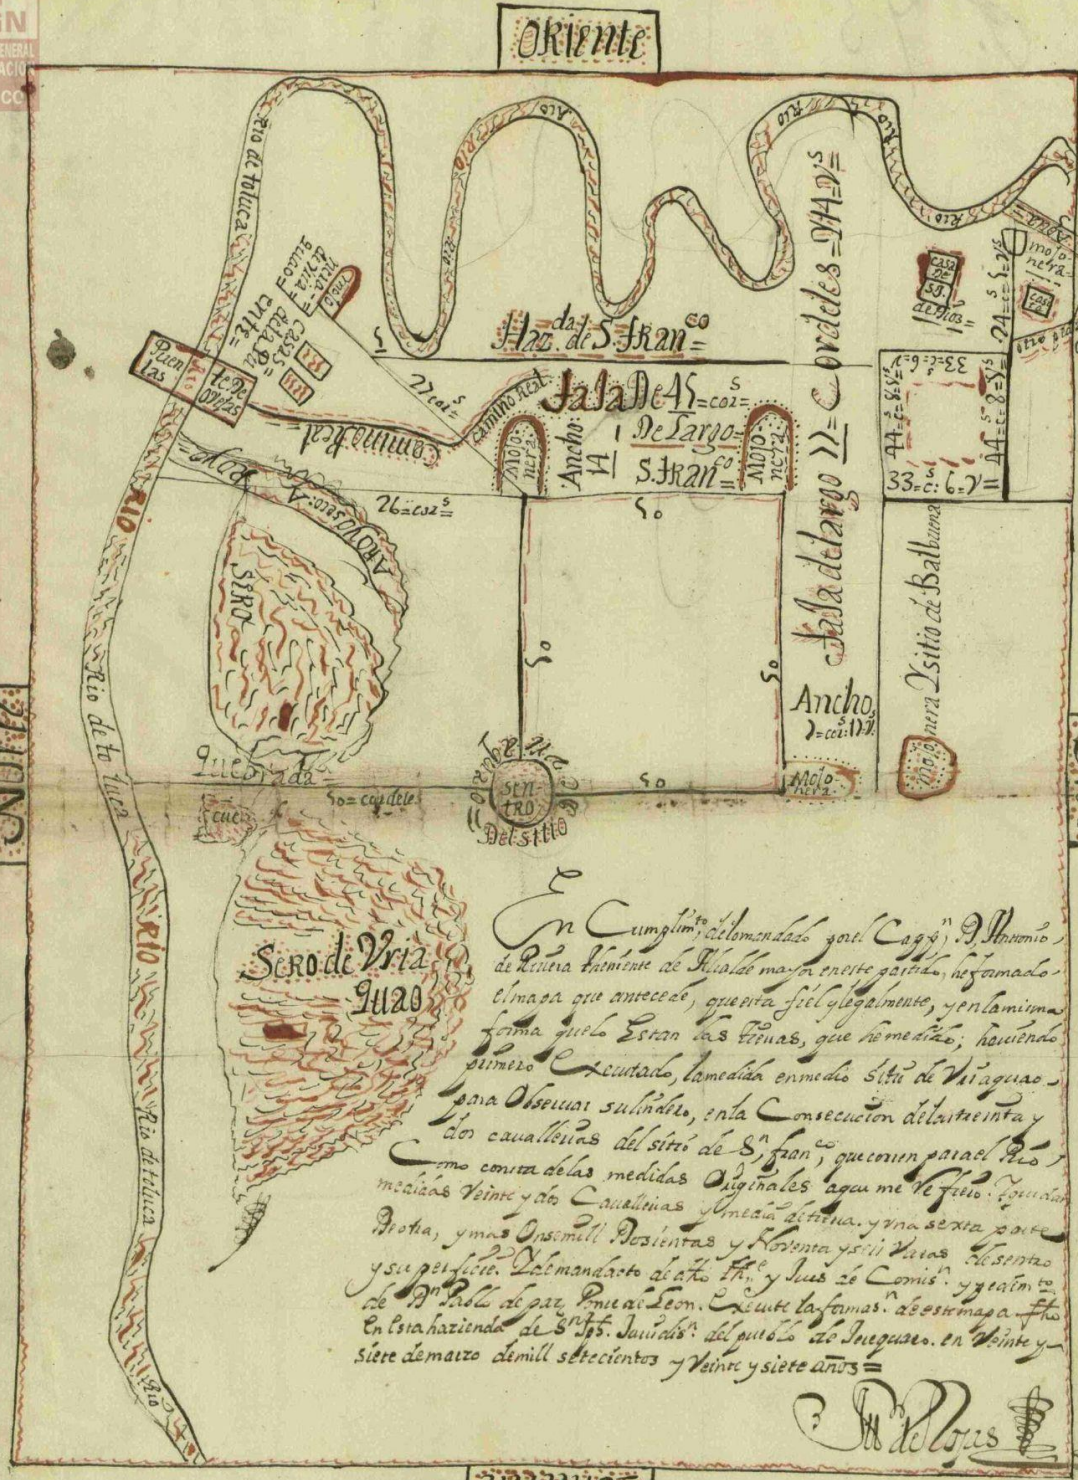 ORIENTE
Rio de toluca
RIO
RIO
RIO
RIO
RIO
RIO
RIO
Haz.da de S. fran.co=
5
27 cor.s=
Casas de la
Puen
tas
te De
Camino Real
Camino Real
Mojo
nera
faja De 45=cor.s=
Ancho
14
De Largo=
S. fran.co=
Mojo
nera
faja de largo 77= Cordeles=244=v.s
Casa
De
S.n
de Dios=
mojo
nera
Casa
24=c.s 5=v.s
33=c=6=v
44=c.s=8=v.s
44=c.s=8=v.s
33=c.s:6=v=
26=cor.s=
Arroyo seco:
SERO
50
50
50
Ancho,
Mojo
nera
Mojonera Y sitio de Balbuena
RIO
Rio de to luca
Quebrada
50=cordeles
Sen
tro
Del sitio
50
Sero de Vria
quao
RIO
Rio de toluca
Rio
En Cumplim.to de lo mandado por el Capp.n D. Antonio
de Rivera theniente de Alcalde mayor en este partido, he formado
el mapa que antecede, que esta fiel y legalmente, y en la misma
forma que lo Estan las tierras, que he medido; haviendo
primero Executado, la medida en medio sitio de Vriaguao
para Observar su lindero, en la Consecucion de las treinta y
dos cavallerias del sitio de S.n fran.co, que corren para el Rio,
Como consta de las medidas Originales a que me Refiero.
medidas Veinte y dos Cavallerias y media de tierra. y vna sexta parte
De otra, y mas Onse mill Dosientas y Noventa y seis Varas de sentro
y superficie. Y de mandato de dho th.e y Jues de Comis.n y pedim.to
de D.n Pablo de paz Ponse de Leon. Execute la formas.n de este mapa fho
En Esta hazienda de S.n Jph. Juridis.n del pueblo de Jerequaro. en Veinte y
siete de marzo de mill setecientos y Veinte y siete años=
de Rojas